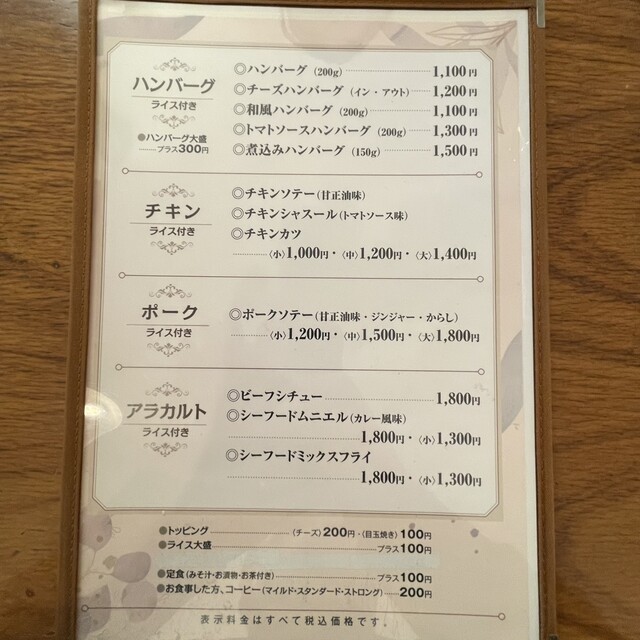 ハンバーグ
ライス付き
●ハンバーグ大盛
プラス300円
◎ハンバーグ (200g) 1,100円
◎チーズハンバーグ (イン・アウト) 1,200円
◎和風ハンバーグ (200g) 1,100円
◎トマトソースハンバーグ (200g) 1,300円
◎煮込みハンバーグ (150g) 1,500円
チキン
ライス付き
◎チキンソテー(甘正油味)
◎チキンシャスール(トマトソース味)
◎チキンカツ
〈小〉1,000円・〈中〉1,200円・〈大〉1,400円
ポーク
ライス付き
◎ポークソテー(甘正油味・ジンジャー・からし)
〈小〉1,200円・〈中〉1,500円・〈大〉1,800円
アラカルト
ライス付き
◎ビーフシチュー 1,800円
◎シーフードムニエル(カレー風味)
1,800円・〈小〉1,300円
◎シーフードミックスフライ
1,800円・〈小〉1,300円
●トッピング 〈チーズ〉200円・〈目玉焼き〉100円
●ライス大盛 プラス100円
●定食(みそ汁・お漬物・お茶付き) プラス100円
●お食事した方、コーヒー(マイルド・スタンダード・ストロング) 200円
表示料金はすべて税込価格です。